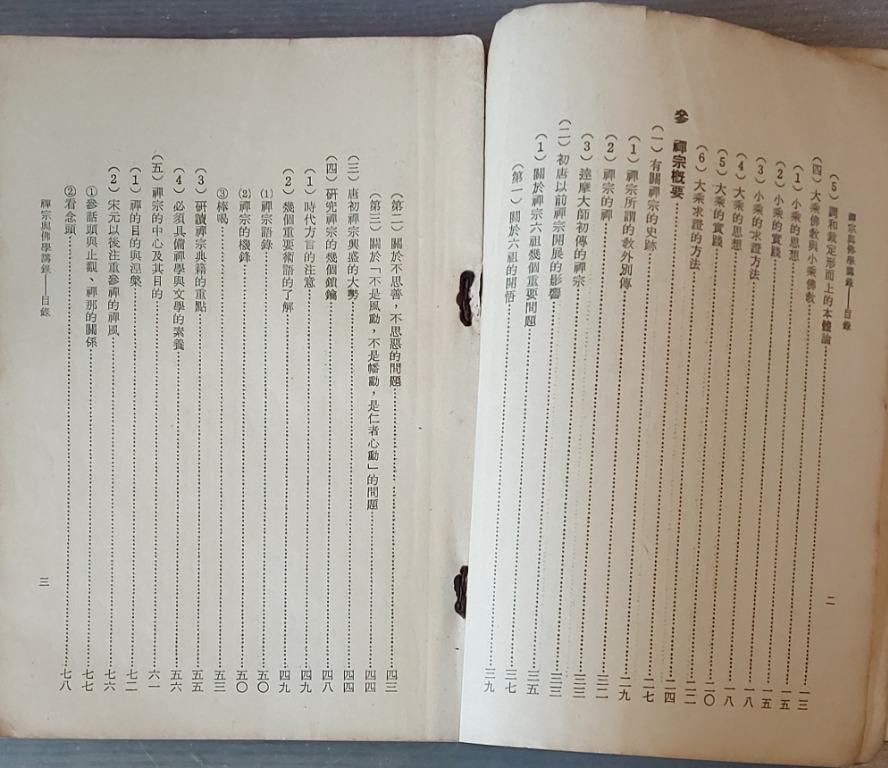 禪宗與佛學講錄——目錄 二
(5)調和裁定形而上的本體論……一三
(四)大乘佛教與小乘佛教……一五
(1)小乘的思想……一五
(2)小乘的實踐……一八
(3)小乘的求證方法……一八
(4)大乘的思想……二〇
(5)大乘的實踐……二二
(6)大乘求證的方法……二四
參 禪宗概要……二七
(一)有關禪宗的史跡……二九
(1)禪宗所謂的教外別傳……三二
(2)禪宗的禪……三三
(3)達摩大師初傳的禪宗……三三
(二)初唐以前禪宗開展的影響……三五
(1)關於禪宗六祖幾個重要問題……三七
(第一)關於六祖的開悟……三九
(第二)關於不思善,不思惡的問題……四三
(第三)關於「不是風動,不是幡動,是仁者心動」的問題……四四
(三)唐初禪宗興盛的大勢……四四
(四)研究禪宗的幾個鎖鑰……四八
(1)時代方言的注意……四九
(2)幾個重要術語的了解……四九
⑴禪宗語錄……五〇
⑵禪宗的機鋒……五〇
③棒喝……五三
(3)研讀禪宗典籍的重點……五五
(4)必須具備禪學與文學的素養……五六
(五)禪宗的中心及其目的……六一
(1)禪的目的與湼槃……七二
(2)宋元以後注重參禪的禪風……七六
①參話頭與止觀、禪那的關係……七七
②看念頭……七八
禪宗與佛學講錄——目錄 三